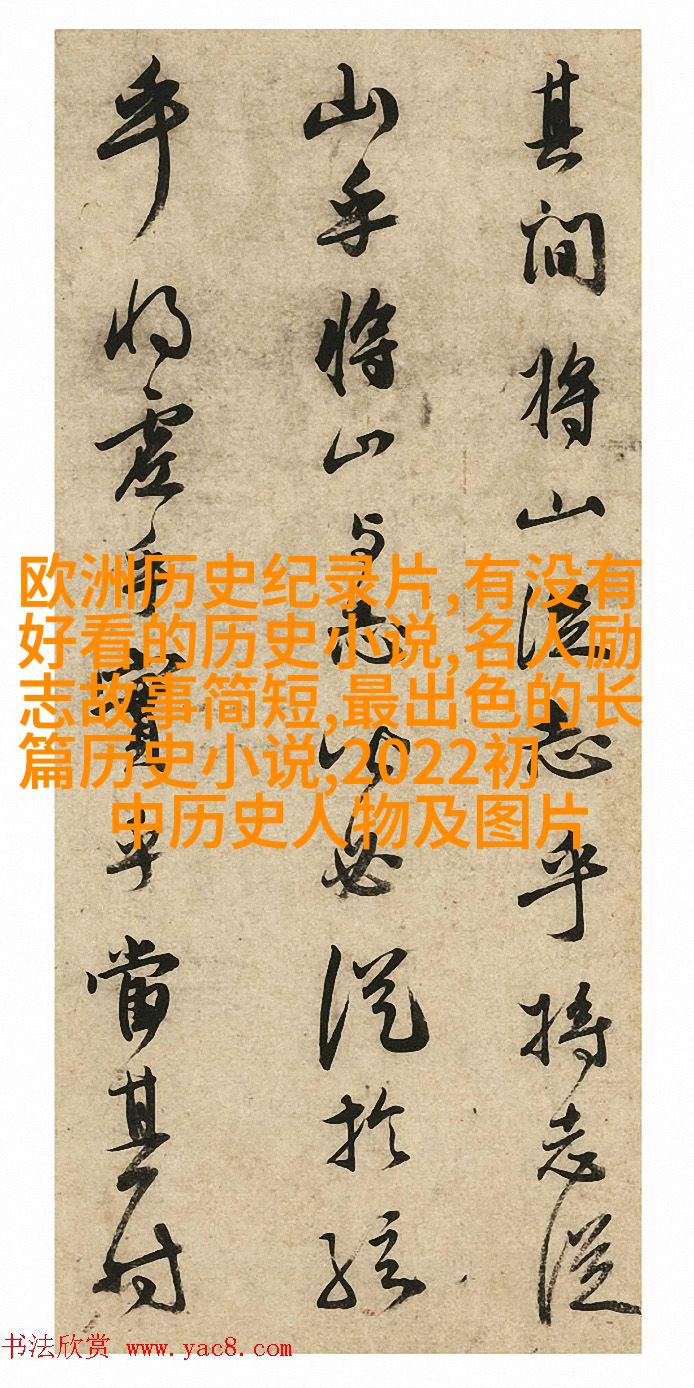 其間將山從志乎將志從
山乎將山与志必從於絃
乎將虛乎實乎當其
欧洲历史纪录片,有没有
好看的历史小说,名人励
志故事简短,最出色的长
篇历史小说,2022初
中历史人物及图片
书法欣赏 www.yac8.com